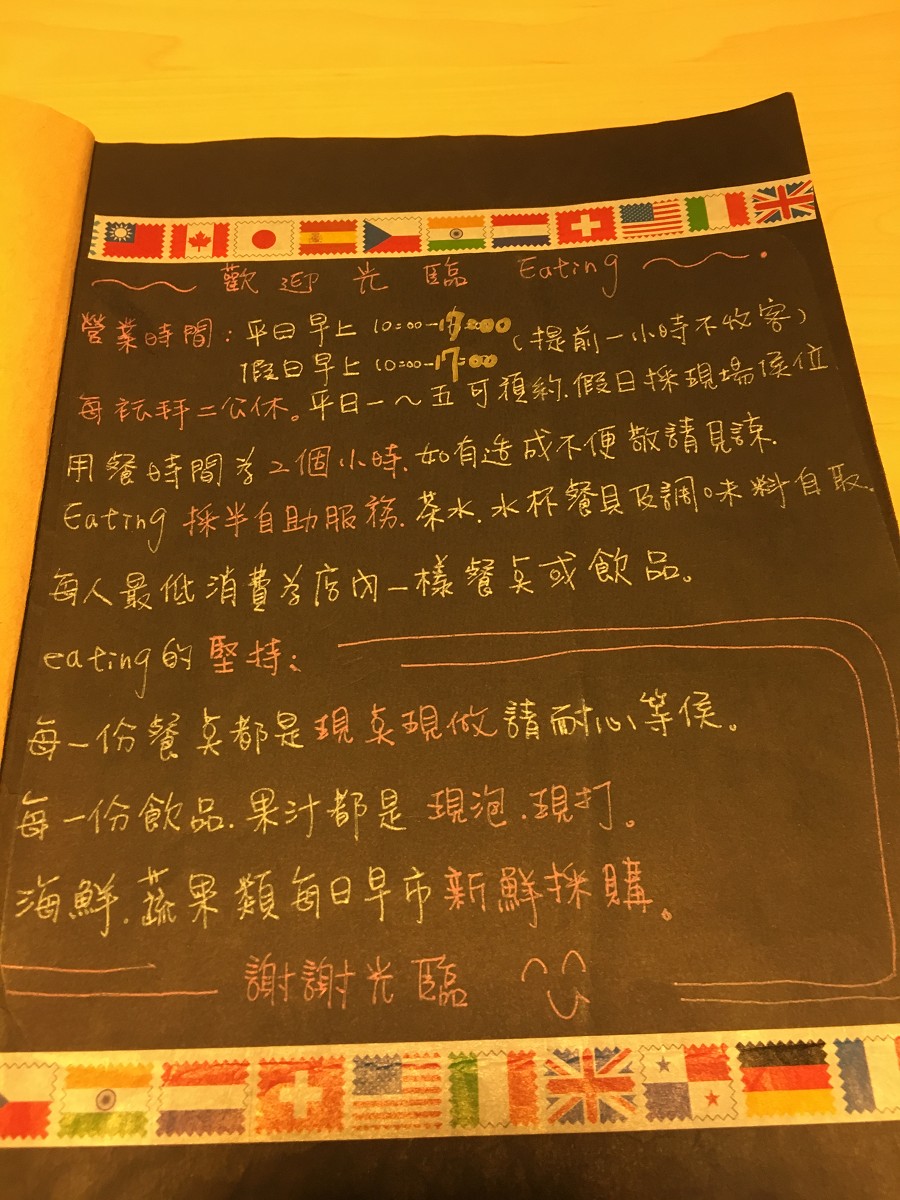 歡迎光臨 Eating
營業時間：平日早上 10:00-17:00 (提前一小時不收客)
假日早上 10:00-17:00
每禮拜二公休。平日一~五可預約.假日採現場候位
用餐時間為2個小時.如有造成不便敬請見諒.
Eating 採半自助服務.茶水.水杯餐具及調味料自取.
每人最低消費為店內一樣餐点或飲品。
eating的堅持：
每一份餐点都是現点現做請耐心等候。
每一份飲品.果汁都是 現泡.現打。
海鮮.蔬果類每日早市新鮮採購。
謝謝光臨